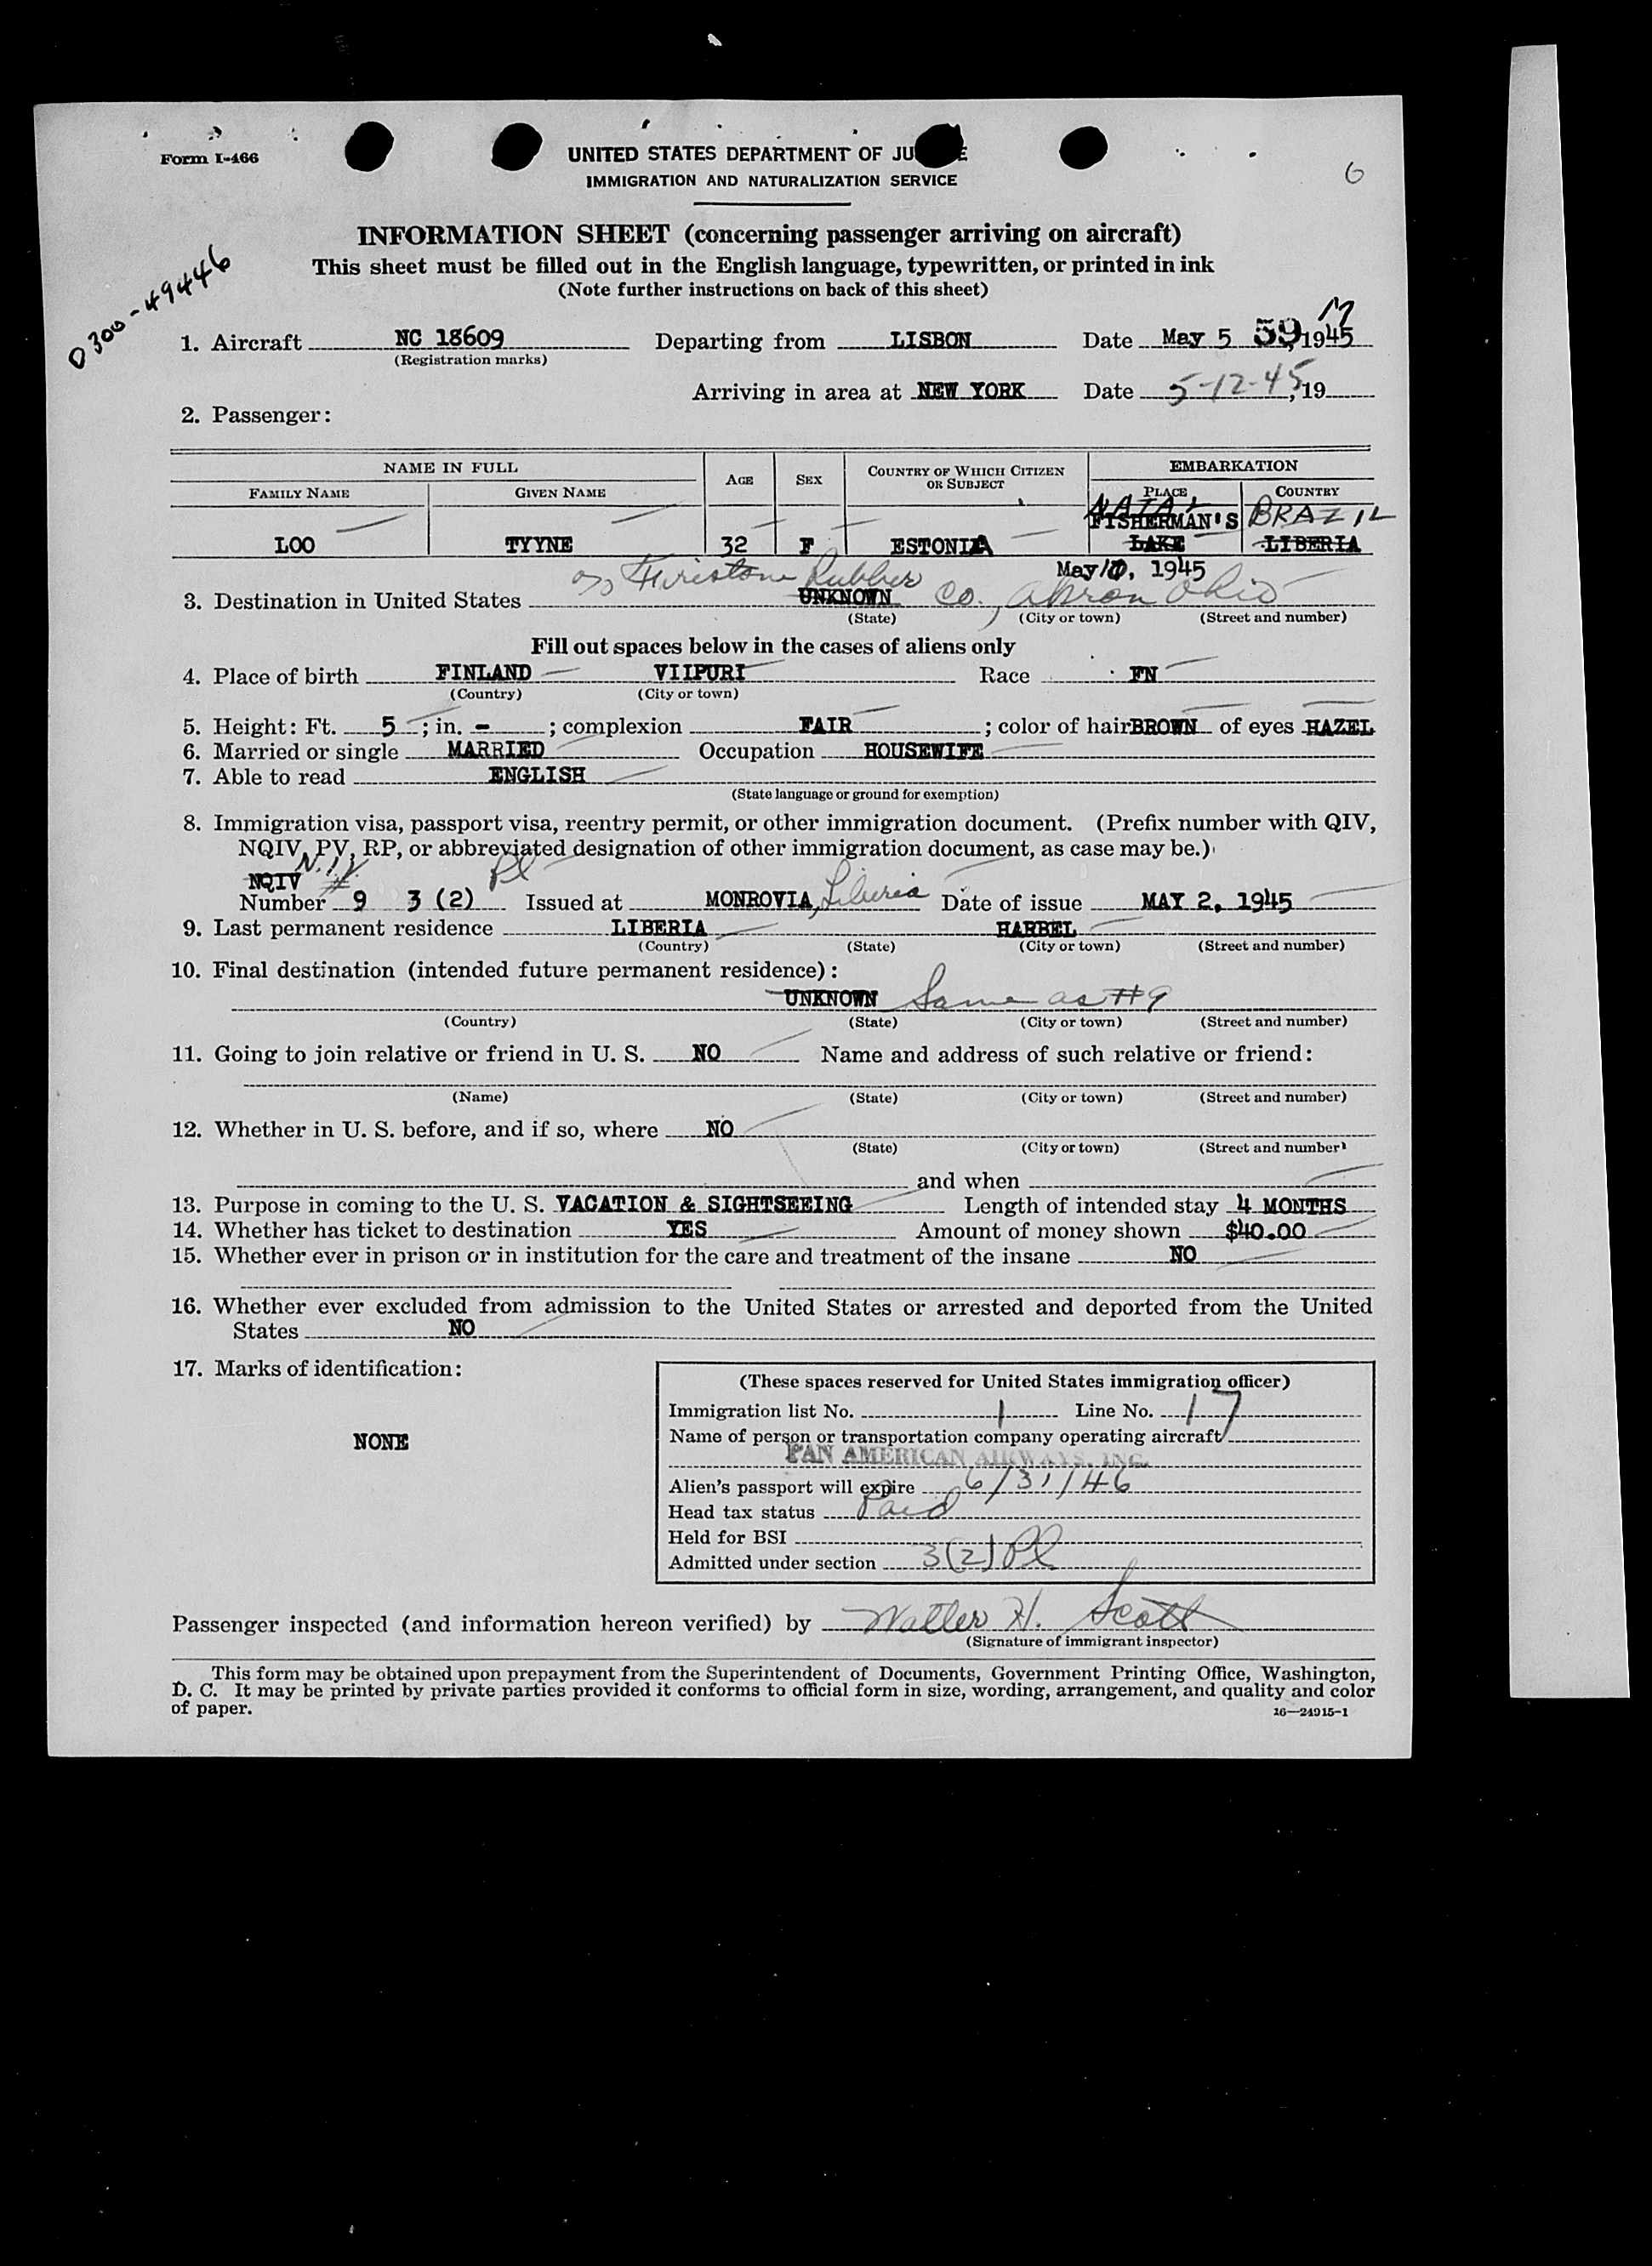 Form I-466
UNITED STATES DEPARTMENT OF JU E
IMMIGRATION AND NATURALIZATION SERVICE
6
INFORMATION SHEET (concerning passenger arriving on aircraft)
This sheet must be filled out in the English language, typewritten, or printed in ink
(Note further instructions on back of this sheet)
0300-49446
1. Aircraft NC 18609 Departing from LISBON Date May 5 59, 1945
(Registration marks)
Arriving in area at NEW YORK Date 5-12-45, 19
2. Passenger:
NAME IN FULL AGE SEX COUNTRY OF WHICH CITIZEN OR SUBJECT EMBARKATION
FAMILY NAME GIVEN NAME PLACE COUNTRY
NATAL BRAZIL
FISHERMAN'S
LOO TYYNE 32 F ESTONIA LAKE LIBERIA
May 10, 1945
c/o Firestone Rubber Co., Akron Ohio
3. Destination in United States UNKNOWN
(State) (City or town) (Street and number)
Fill out spaces below in the cases of aliens only
4. Place of birth FINLAND VIIPURI Race FN
(Country) (City or town)
5. Height: Ft. 5; in. -; complexion FAIR; color of hair BROWN of eyes HAZEL
6. Married or single MARRIED Occupation HOUSEWIFE
7. Able to read ENGLISH
(State language or ground for exemption)
8. Immigration visa, passport visa, reentry permit, or other immigration document. (Prefix number with QIV,
NQIV, PV, RP, or abbreviated designation of other immigration document, as case may be.)
N.I.V. Pl
NQIV #
Number 9 3 (2) Issued at MONROVIA, Liberia Date of issue MAY 2, 1945
9. Last permanent residence LIBERIA HARBEL
(Country) (State) (City or town) (Street and number)
10. Final destination (intended future permanent residence):
UNKNOWN Same as #9
(Country) (State) (City or town) (Street and number)
11. Going to join relative or friend in U. S. NO Name and address of such relative or friend:
(Name) (State) (City or town) (Street and number)
12. Whether in U. S. before, and if so, where NO
(State) (City or town) (Street and number)
and when
13. Purpose in coming to the U. S. VACATION & SIGHTSEEING Length of intended stay 4 MONTHS
14. Whether has ticket to destination YES Amount of money shown $40.00
15. Whether ever in prison or in institution for the care and treatment of the insane NO
16. Whether ever excluded from admission to the United States or arrested and deported from the United
States NO
17. Marks of identification:
NONE
(These spaces reserved for United States immigration officer)
Immigration list No. 1 Line No. 17
Name of person or transportation company operating aircraft
PAN AMERICAN AIRWAYS, INC.
Alien's passport will expire 6/31/46
Head tax status Paid
Held for BSI
Admitted under section 3(2) Pl
Passenger inspected (and information hereon verified) by Walter H. Scott
(Signature of immigrant inspector)
This form may be obtained upon prepayment from the Superintendent of Documents, Government Printing Office, Washington,
D. C. It may be printed by private parties provided it conforms to official form in size, wording, arrangement, and quality and color
of paper.
16—24915-1